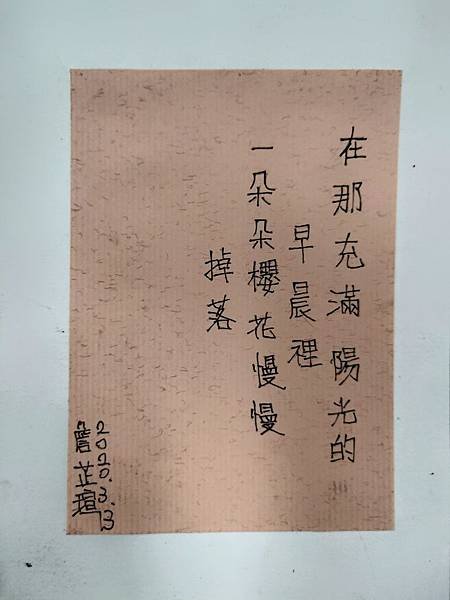 在那充滿陽光的
早晨裡
一朵朵櫻花慢慢
掉落
2020.3.13
詹芷瑄